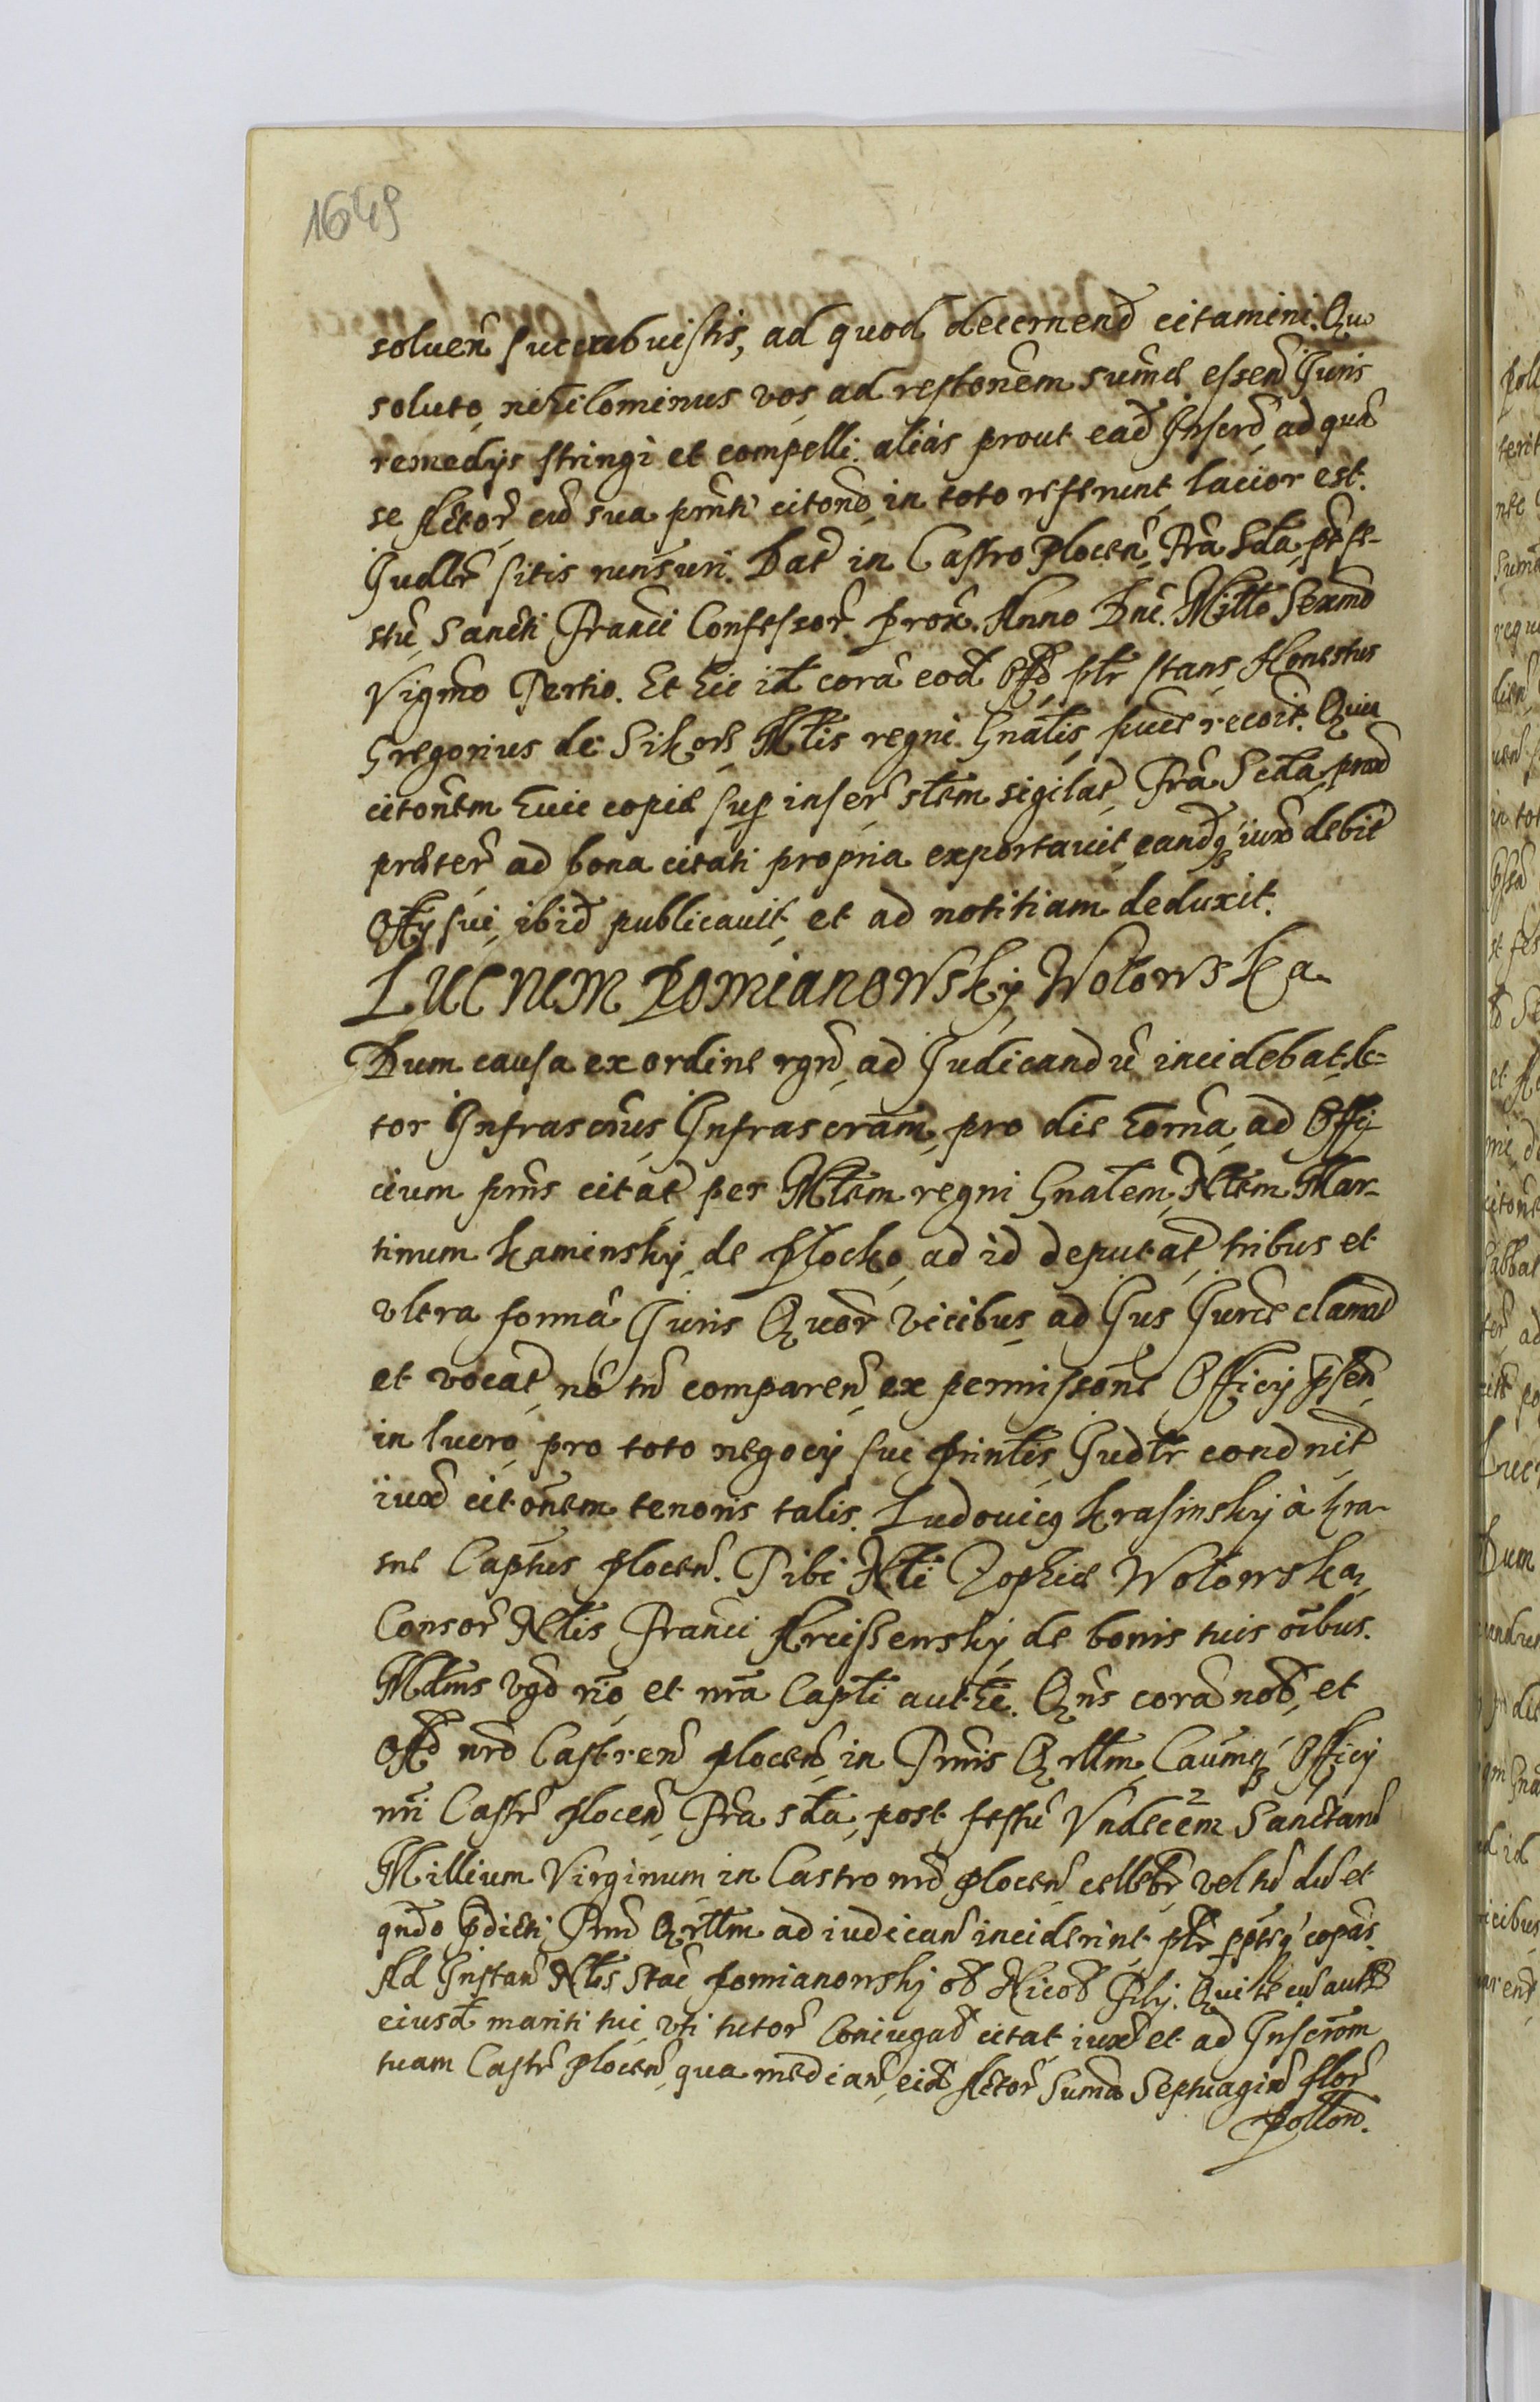 1649
soluen̄ succubuistis, ad quod decernend̄ citamini. Quo
soluto, nihilominus vos ad restonem sum̄æ essen̄ Juris
remedijs stringi et compelli. alias prout ead̄ Inscrō ad quā
se Actor̄ cū sua prn̄ti citonē in toto referunt lacior est.
Judlr̄ sitis rūnsuri. Dat̄ in Castro Plocen̄, Fr̄a Sctā, p̄ fe-
stū Sancti Franci Confessor̄ prox̄. Anno Dn̄i. Mille̅o Sexmō
Vigm̄o Tertio. Et hic id̄ corā eod̄ Offō ptr̄ stans Honestus
Gregorius de Sikorz Mltis regni Gnālis, suæ recoit. Quia
citonem huic copiæ sup̱ inser̄ stem sigilat̄ Fr̄a Sctā, prox̄
prēter̄ ad bona citati propria exportauit eandq̃ iux̄ debit̄
Offij sui, ibid̄ publicauit, et ad notitiam deduxit.
Lucrum Pomianowskij Wołowska
Dum causa ex ordine rgrō, ad Judicandū incidebat, Ac-
tor Infrascrus Infrascram, pro die hōrna, ad Offi-
cium prn̄s citat̄ per Mltem regni Gnālem, Nltem Mar-
tinum Kaminskij, de Plocko, ad id deputat̄, tribus et
vltra formā Juris Quor̄ vicibus ad Jus Juræ clamat̄
et vocat̄, nō tn̄ comparen̄, ex permissone Officij p̄sen̄,
in lucro, pro toto negocij sui Printis Judlr̄ condnit̄
iux̄ citonem tenoris talis. Ludouicq Krasinskij à Kra-
sne Captus Plocen̄. Tibi Nlti Zophiæ Wołowska,
Consor̄ Nltis Franci Arcissewskij de bonis tuis oībus.
Mdāms vgō rīo, et nrā Captli autthē. Qns corā nob̄, et
Offō nrō Castren̄ Plocen̄, in Trm̄is Qrllm, Caūmq̃ Officij
nrī Castr̄ Plocen̄ Fr̄a sctā, post festū Vndecem Sanctarū
Millium Virginum in Castro nrō Plocen̄ cellebr̄ vel tū dū et
qndo p̄dicti Trmi Qrllm ad iudican̄ inciderint, ptr̄ pptrq̃ copās.
Ad Instan̄ Nltis Stan̄ Pomianowskij ol̄ Nicol̄ Filij. Qui te cū autthē
eiusd̄ mariti tui, vti tutor̄ Coniugal̄ citat, iux̄ et ad Inscrom
tuam Castr̄ Plocen̄, qua median̄, eid̄ Actor̄ Sumā Septuagin̄ flor̄
Pollon̄.